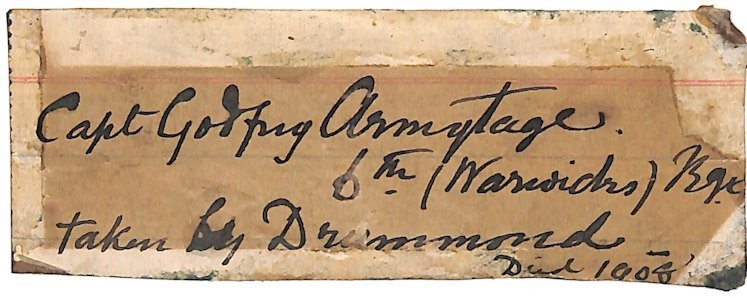 Capt Godfrey Armytage.
6th (Warwicks) Rgt
taken by Drummond
Died 1908